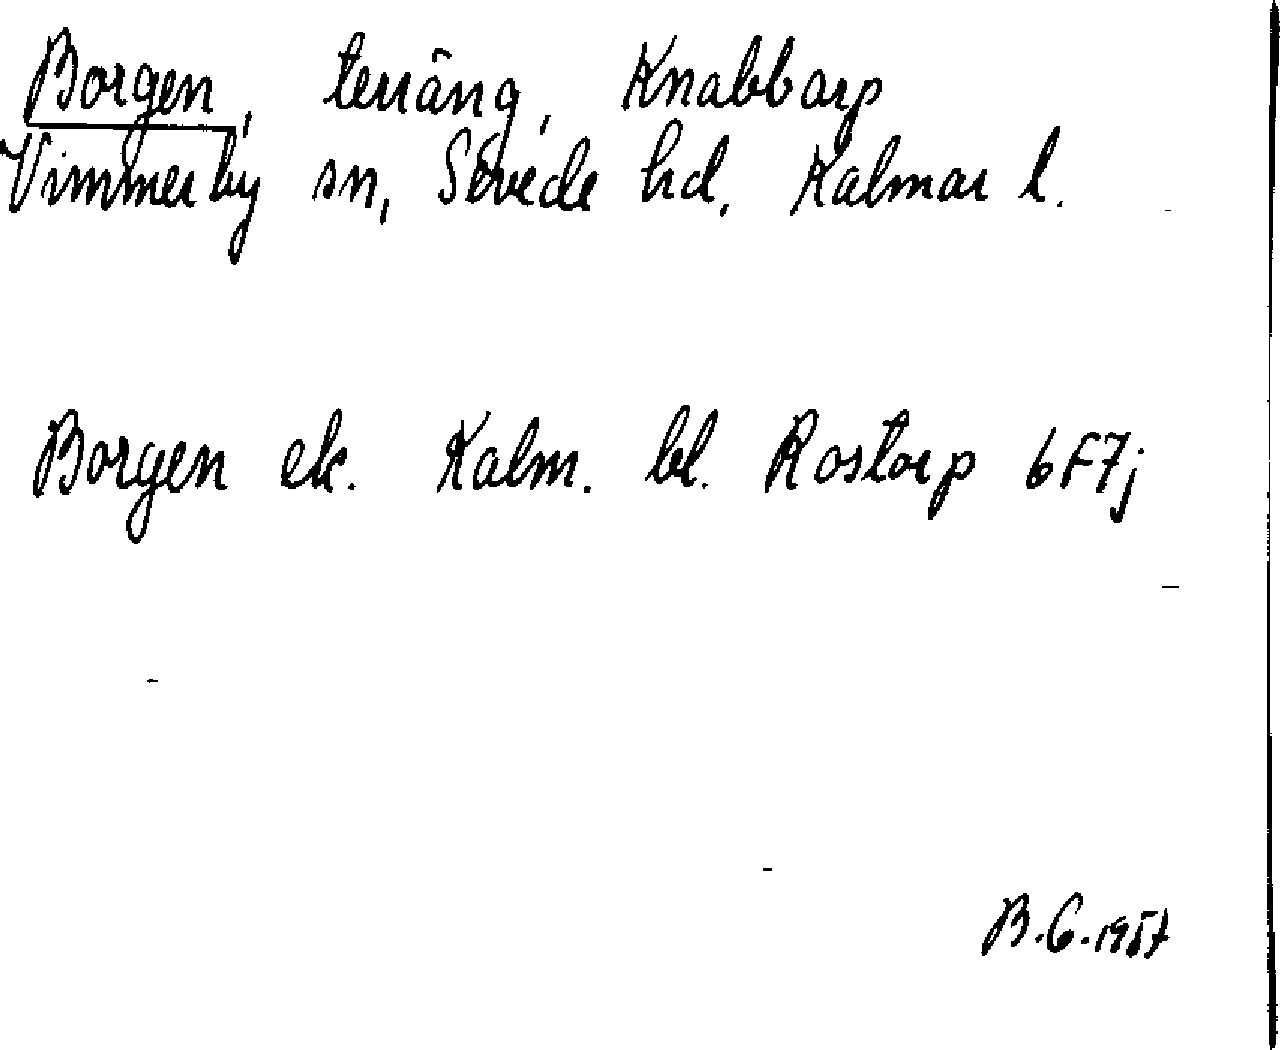 Borgen, terräng, Knabbarp
Vimmerby sn, Sevede hd, Kalmar l.
Borgen ek. Kalm. bl. Rostorp 6F7j
B.G. 1957